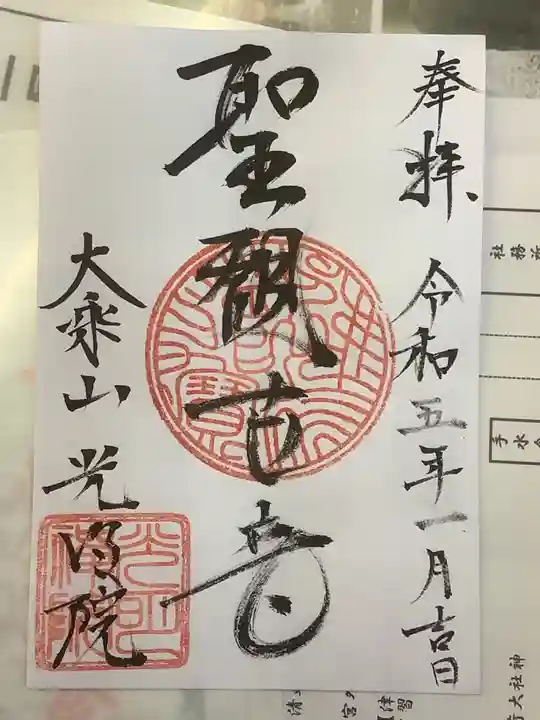 奉拝
令和五年一月吉日
聖観世音
大乗山
光明院
社務所
手水